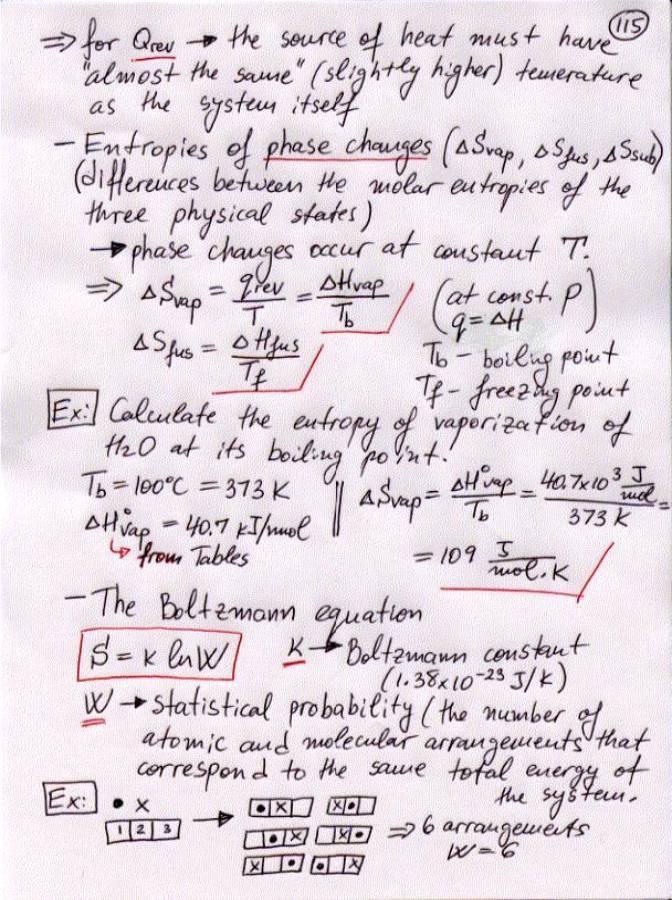 115
⇒ for Qrev → the source of heat must have
"almost the same" (slightly higher) temerature
as the system itself
- Entropies of phase changes (ΔSvap, ΔSfus, ΔSsub)
(differences between the molar entropies of the
three physical states)
→ phase changes occur at constant T.
⇒ ΔSvap = qrev/T = ΔHvap/Tb (at const. P)
q = ΔH
ΔSfus = ΔHfus/Tf
Tb - boilng point
Tf - freezing point
Ex: Calculate the entropy of vaporization of
H2O at its boiling point.
Tb = 100°C = 373 K || ΔSvap = ΔH°vap/Tb = 40.7x10³ J/mol / 373 K =
ΔH°vap = 40.7 kJ/mol
↳ from Tables
= 109 J/mol.K
- The Boltzmann equation
S = k lnW K → Boltzmann constant
(1.38x10⁻²³ J/K)
W → statistical probability (the number of
atomic and molecular arrangements that
correspond to the same total energy of
the system.
Ex: • x
1 2 3 → • x x •
• x x • ⇒ 6 arrangements
W = 6
x • • x